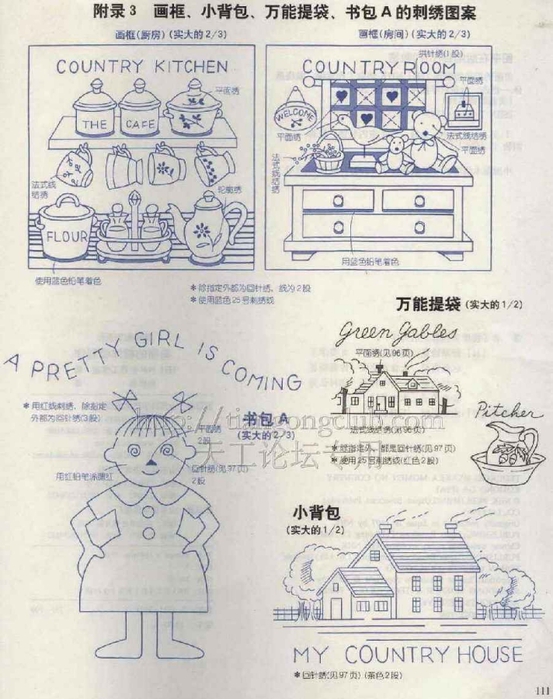 附录3 画框、小背包、万能提袋、书包A的刺绣图案
画框(厨房)(实大的2/3)
COUNTRY KITCHEN
平面绣
THE
CAFE
法式线结绣
轮廓绣
FLOUR
使用蓝色铅笔着色
画框(房间)(实大的2/3)
拱针绣(1股)
COUNTRY ROOM
平面绣
WELCOME
平面绣
法式线结绣
平面绣
法式线结绣
用蓝色铅笔着色
*除指定外都为回针绣、线为2股
*使用蓝色25号刺绣线
万能提袋 (实大的1/2)
Green Gables
平面绣(见96页)
法式线结绣(见96页)
*除指定外、都是回针绣(见97页)
*使用25号刺绣线(红色2股)
Pitcher
A PRETTY GIRL IS COMING
*用红线刺绣、除指定
外都为回针绣(3股)
书包A
(实大的2/3)
平面绣
2股
回针绣(见97页)
2股
用红铅笔涂腮红
天工论坛
小背包
(实大的1/2)
MY COUNTRY HOUSE
*回针绣(见97页)(茶色2股)
111